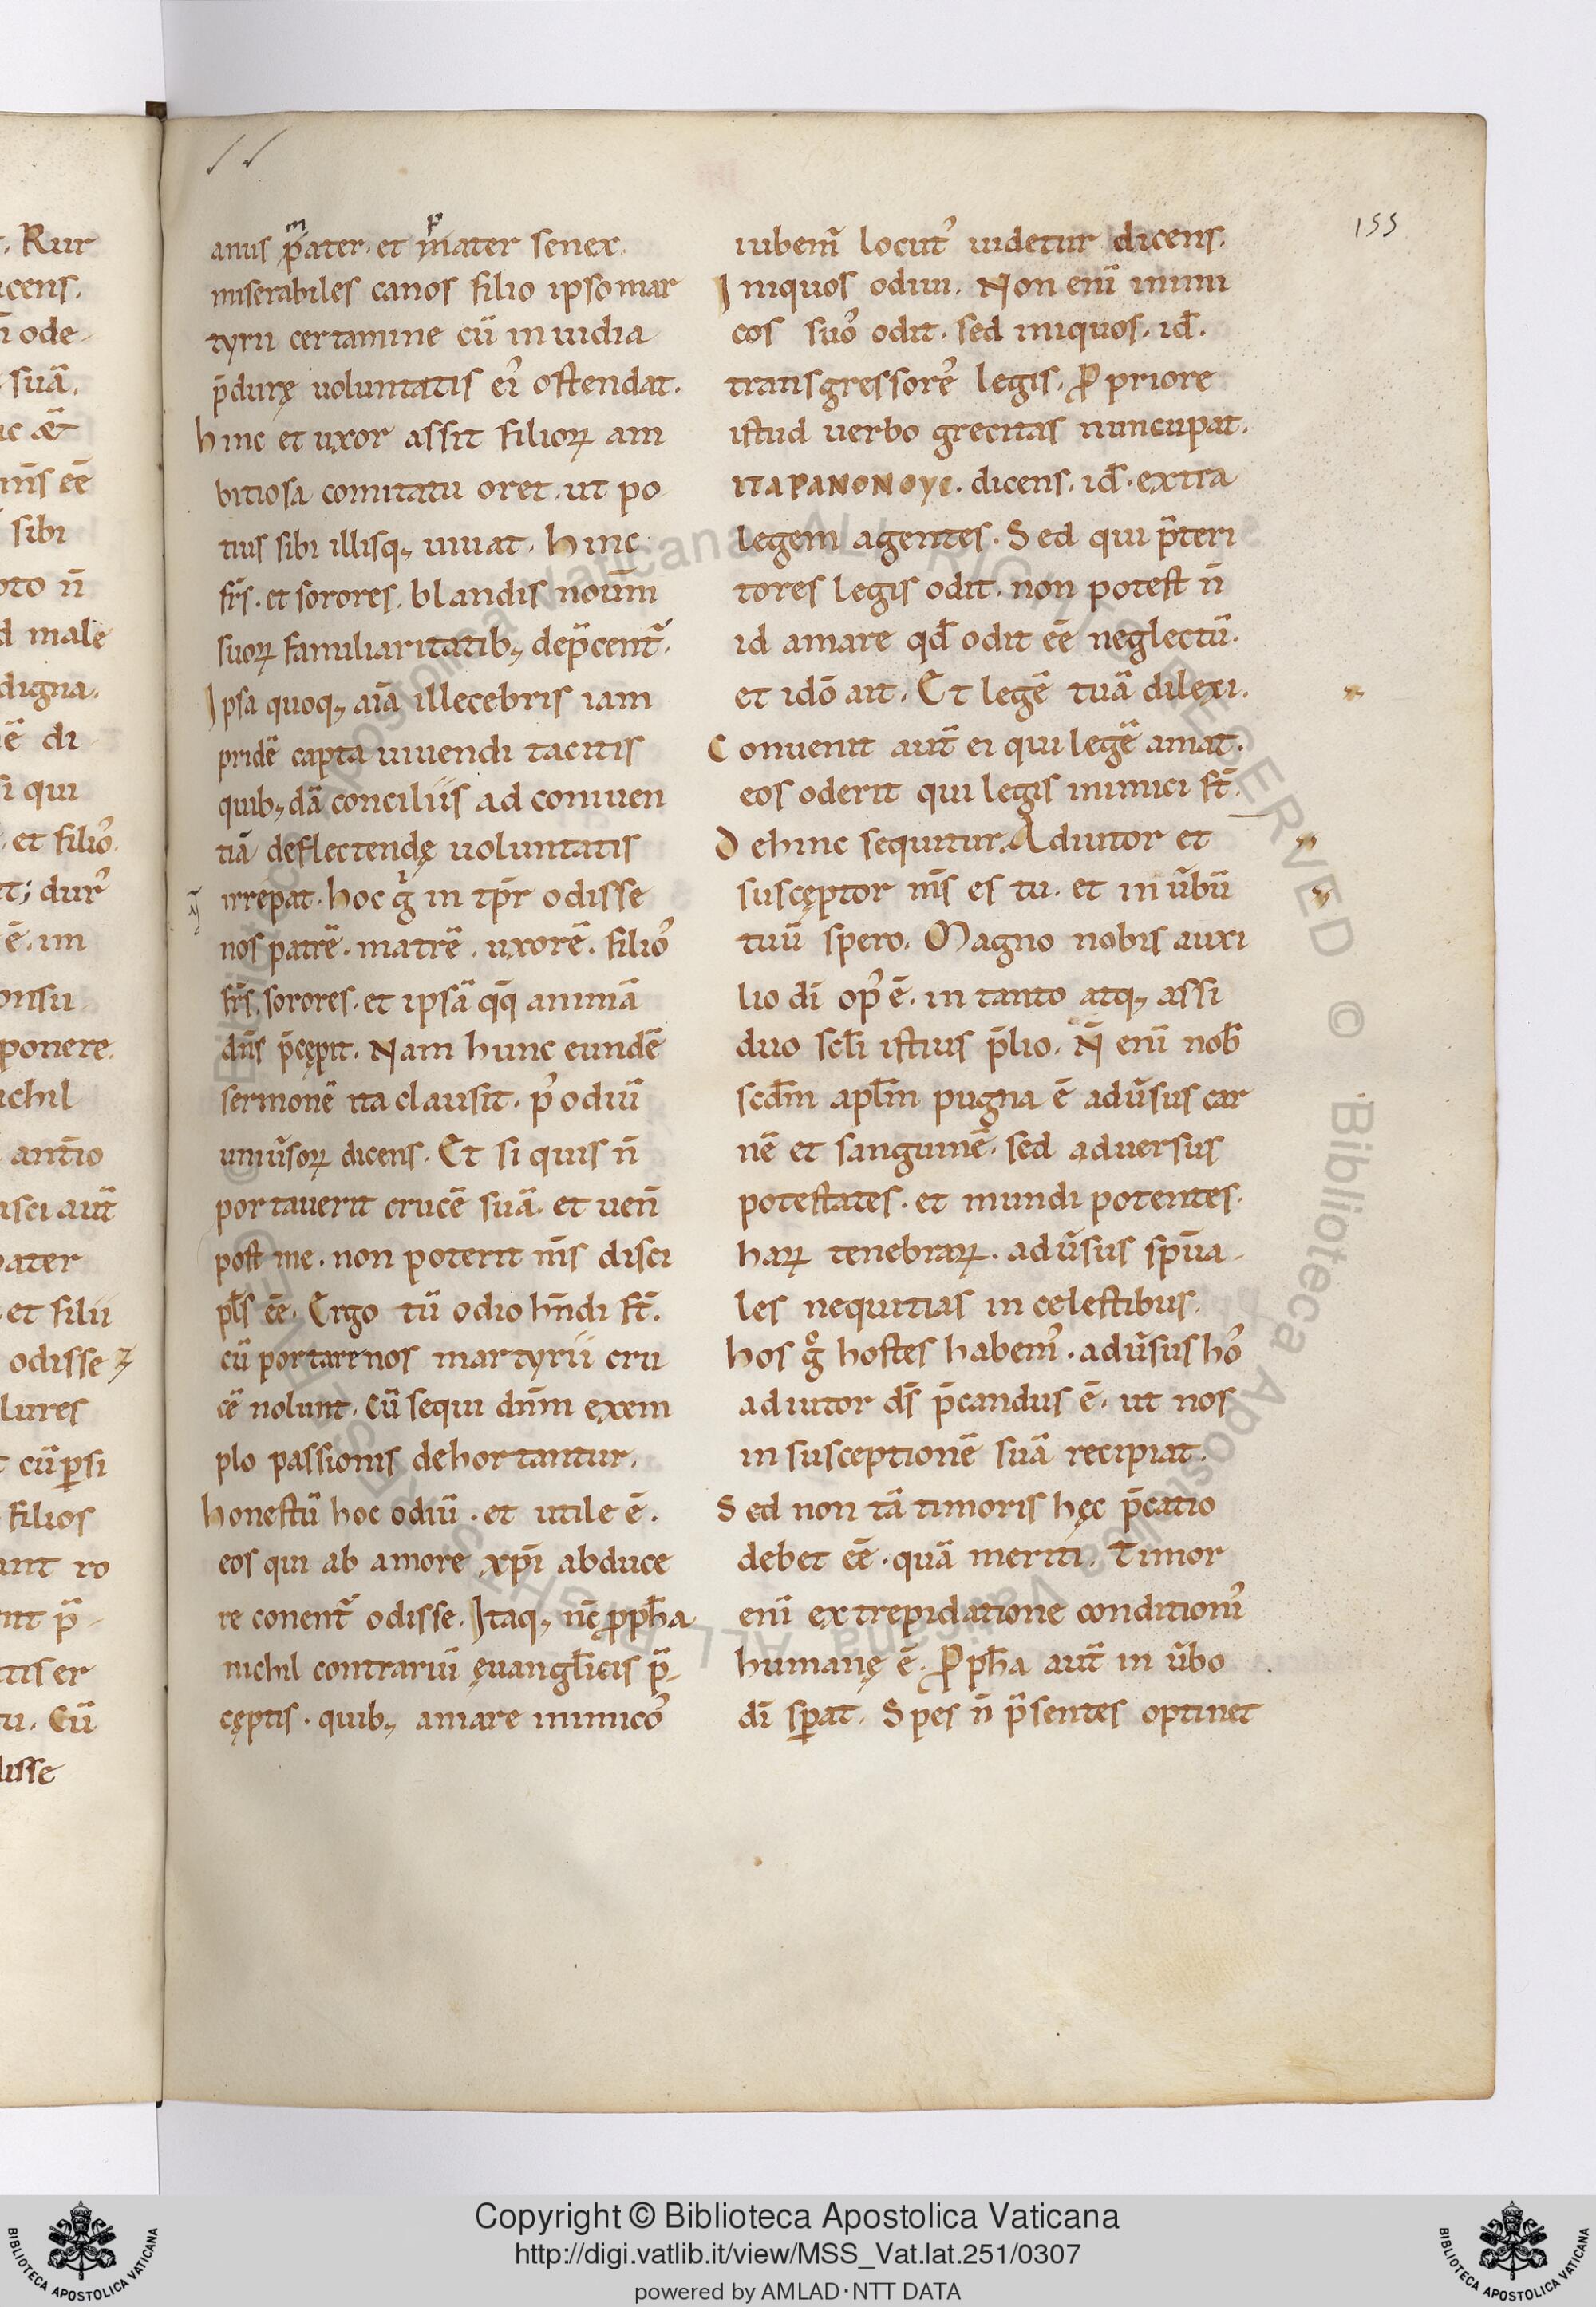 155
anus p̄ater. et m̄ater senex.
miserabiles canos filio ipso mar
tyrii certamine cū inuidia
p̄durę uoluntatis ei᾽ ostendat.
hinc et uxor assit filioꝝ am
bitiosa comitatu oret. ut po
tius sibi illisq; uiuat. hinc
fr̄s. et sorores. blandis noūm
suoꝝ familiaritatib; dep̄cent᾽.
Ipsa quoq; aīa illecebris iam
pridē capta uiuendi tacitis
quib; dā conciliis ad coniuen
tiā deflectendę uoluntatis
irrepat. hoc g̍ in tp̄r odisse
nos patrē. matrē. uxorē. filio᾽
fr̄s. sorores. et ipsā qq̄ animā
dn̄s p̄cępit. Nam hunc eundē
sermonē ita clausit. p᾽ odiū
uniūsoꝝ dicens. Et si quis n̄
portauerit crucē suā. et uen̄
post me. non poterit m̄s disci
pl̄s eē. Ergo tū odio hn̄di st̄.
cū portare nos martyrii cru
cē nolunt. cū sequi dn̄m exem
plo passionis dehortantur.
honestū hoc odiū. et utile ē.
eos qui ab amore xp̄i abduce
re conent᾽ odisse. Itaq; nc̄ ꝓpħa
nichil contrariū ęuangl̄icis p̄
cęptis. quib; amare inimico᾽
iubem̄ locut᾽ uidetur dicens.
Iniquos odiui. Non enī inimi
cos suo᾽ odit. sed iniquos. id̄.
transgressore᾽ legis. ꝓpriore
istud uerbo grecitas nuncupat.
ITAPANONOYC. dicens. id̄. extra
legem agentes. Sed qui p̄teri
tores legis odit. non potest n̄
id amare qd̄ odit eē neglectū.
et idō ait. Et legē tuā dilexi.
Conuenit aut̄ ei qui legē amat.
eos oderit qui legis inimici st̄.
Dehinc sequitur. Adiutor et
suscęptor m̄s es tu. et in ūbū
tuū spero. Magno nobis auxi
lio dī op᾽ ē. in tanto atq; assi
duo scl̄i istius p̄lio. N̄ enī nob̄
scd̄m apl̄m pugna ē adūsus car
nē et sanguinē. sed aduersus
potestates. et mundi potentes.
haꝝ tenebraꝝ. adūsus spūa
les nequitias in celestibus.
hos g̊ hostes habem᾽. adūsus ho᾽
adiutor ds̄ p̄candus ē. ut nos
in susceptionē suā recipiat.
Sed non tā timoris hęc p̄catio
debet eē. quā meriti. Timor
enī ex trepidatione condition᾽
humanę ē. Ꝓpħa aut̄ in ūbo
dī sꝑat. Spes n̄ p̄sentes optinet
Copyright © Biblioteca Apostolica Vaticana
http://digi.vatlib.it/view/MSS_Vat.lat.251/0307
powered by AMLAD·NTT DATA